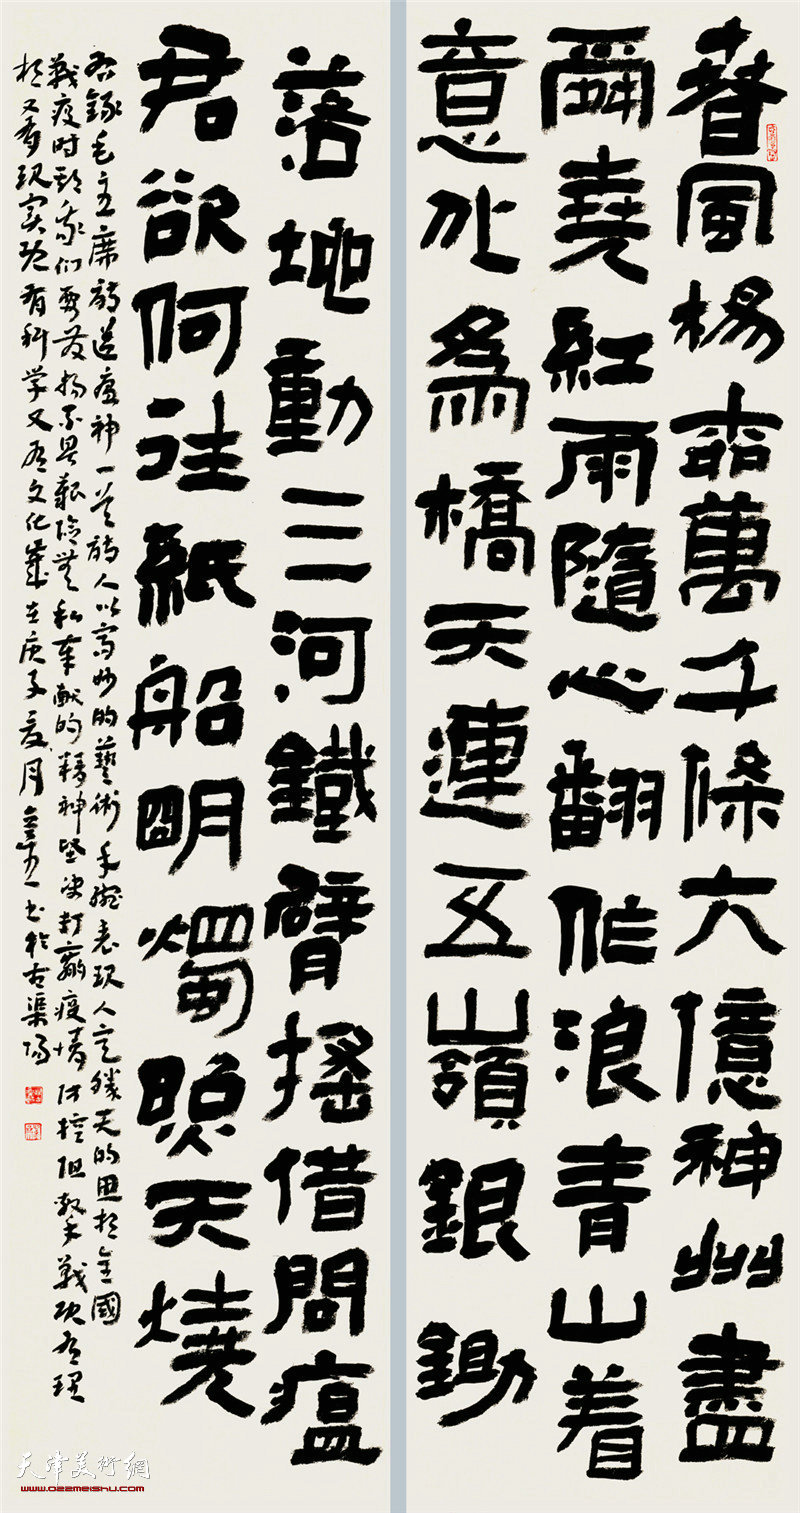 春風楊柳萬千條六億神州盡
舜堯紅雨隨心翻作浪青山着
意化爲橋天連五嶺銀鋤
落地動三河鐵臂搖借問瘟
君欲何往紙船明燭照天燒
右錄毛主席詩送瘟神一首詩人以高妙的藝術手腕表現人定勝天的思想全國
戰疫时期我们要发扬不畏艱險無私奉献的精神坚决打贏疫情防控阻擊戰既有理
想又有现实既有科学又有文化歲在庚子夏月書於古渠陽
天津美術網
www.022meishu.com